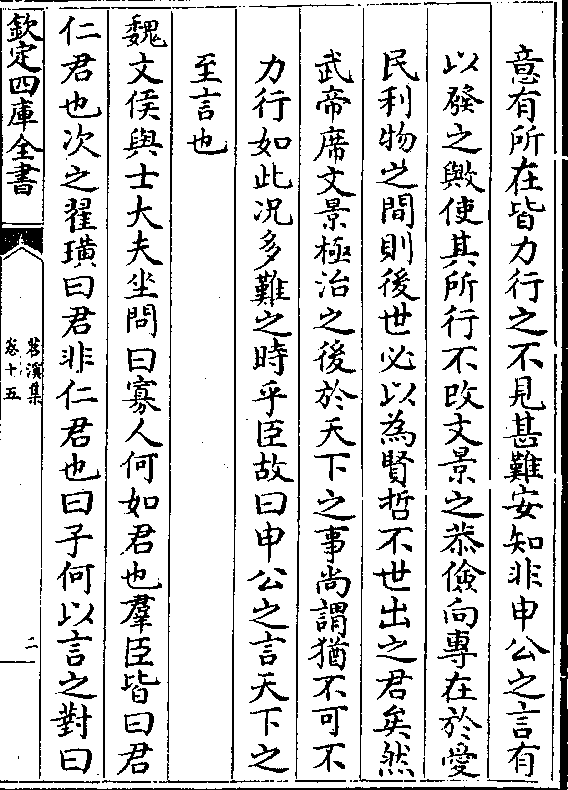 意有所在皆力行之不見甚難安知非申公之言有
以發之歟使其所行不改文景之恭儉向專在於愛
民利物之間則後世必以為賢哲不世出之君矣然
武帝席文景極治之後於天下之事尚謂猶不可不
力行如此况多難之時乎臣故曰申公之言天下之
至言也
魏文侯與士大夫坐問曰寡人何如君也羣臣皆曰君
仁君也次之翟璜曰君非仁君也曰子何以言之對曰
欽定四庫全書
苕溪集
卷十五
二